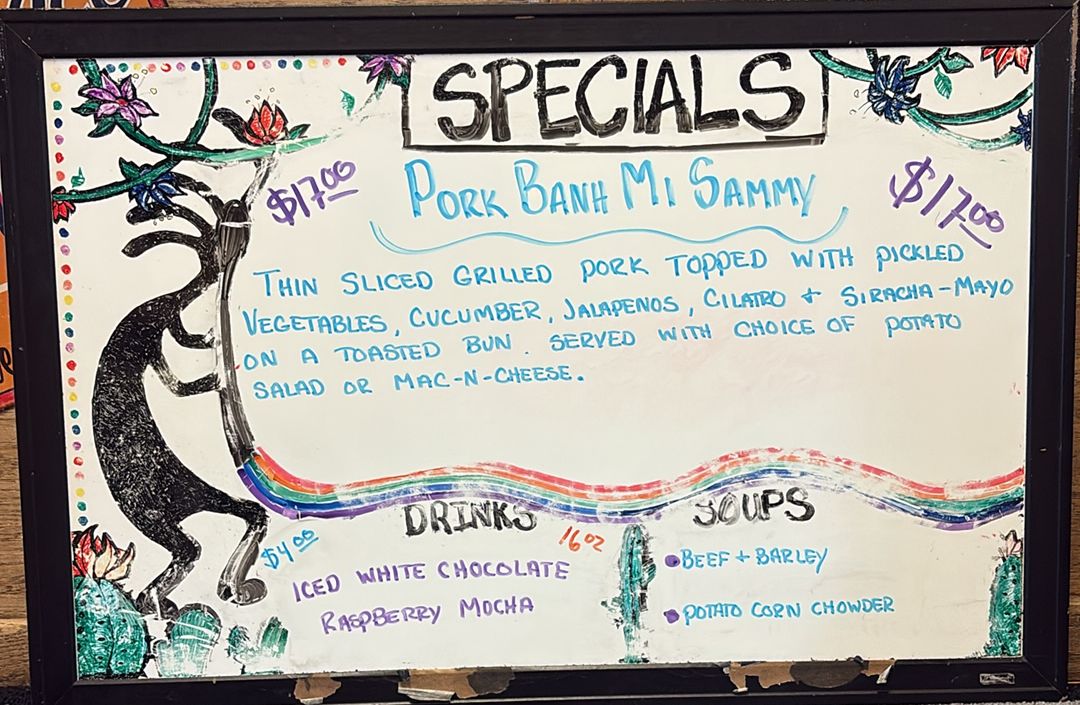 SPECIALS
$17.00 PORK BANH MI SAMMY $17.00
THIN SLICED GRILLED PORK TOPPED WITH PICKLED
VEGETABLES, CUCUMBER, JALAPENOS, CILATRO + SIRACHA-MAYO
ON A TOASTED BUN. SERVED WITH CHOICE OF POTATO
SALAD OR MAC-N-CHEESE.
DRINKS
$4.00 16oz
ICED WHITE CHOCOLATE
RASPBERRY MOCHA
SOUPS
•BEEF + BARLEY
•POTATO CORN CHOWDER